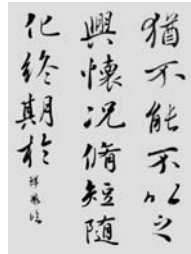 猶不能不以之
興懷况脩短随
化終期於